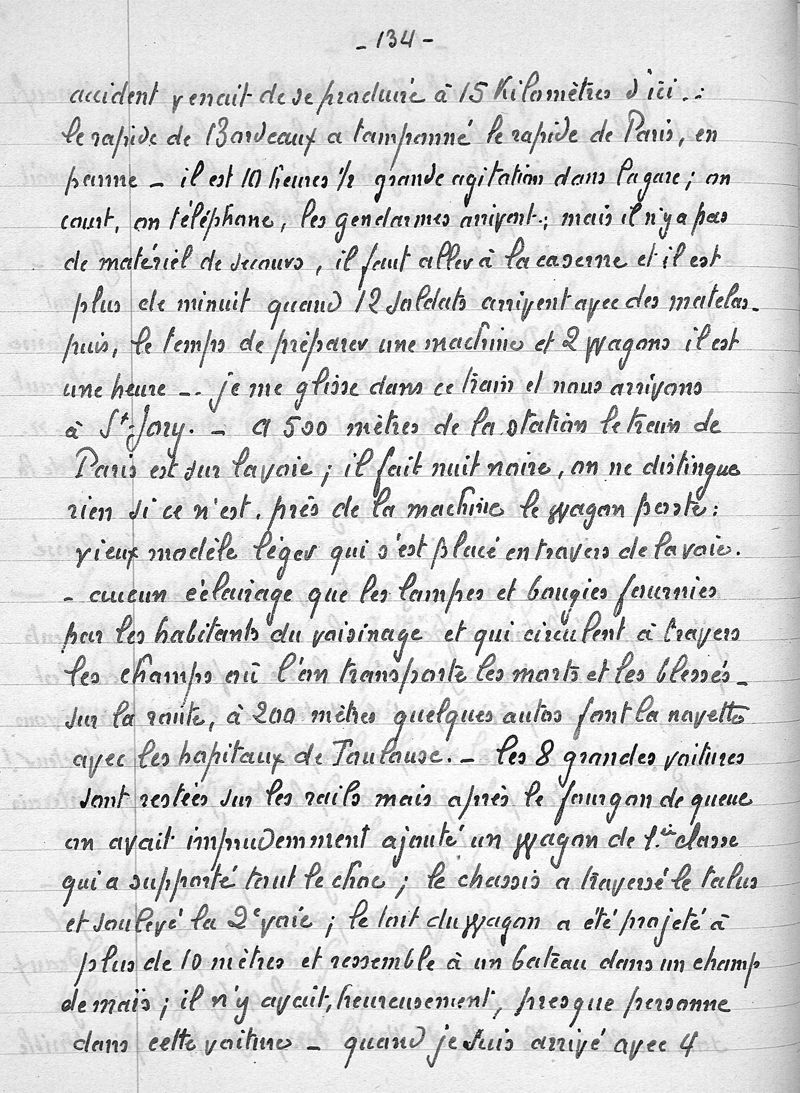 - 134 -
accident venait de se produire à 15 Kilomètres d'ici..:
le rapide de Bordeaux a tamponné le rapide de Paris, en
panne - il est 10 heures ½ grande agitation dans la gare ; on
court, on téléphone, les gendarmes arrivent ; mais il n'y a pas
de matériel de secours, il faut aller à la caserne et il est
plus de minuit quand 12 soldats arrivent avec des matelas.
puis, le temps de préparer une machine et 2 wagons il est
une heure -. je me glisse dans ce train et nous arrivons
à St-Jory. - a 500 mètres de la station le train de
Paris est sur la voie ; il fait nuit noire, on ne distingue
rien si ce n'est. près de la machine le wagon poste :
vieux modèle léger qui s'est placé en travers de la voie.
- aucun éclairage que les lampes et bougies fournies
par les habitants du voisinage et qui circulent à travers
les champs où l'on transporte les morts et les blessés -
sur la route, à 200 mètres quelques autos font la navette
avec les hopitaux de Toulouse. - les 8 grandes voitures
sont restées sur les rails mais après le fourgon de queue
on avait imprudemment ajouté un wagon de 1.ère classe
qui a supporté tout le choc ; le chassis a traversé le talus
et soulevé la 2e voie ; le toit du wagon a été projeté à
plus de 10 mètres et ressemble à un bateau dans un champ
de maïs ; il n'y avait, heureusement, presque personne
dans cette voiture - quand je suis arrivé avec 4